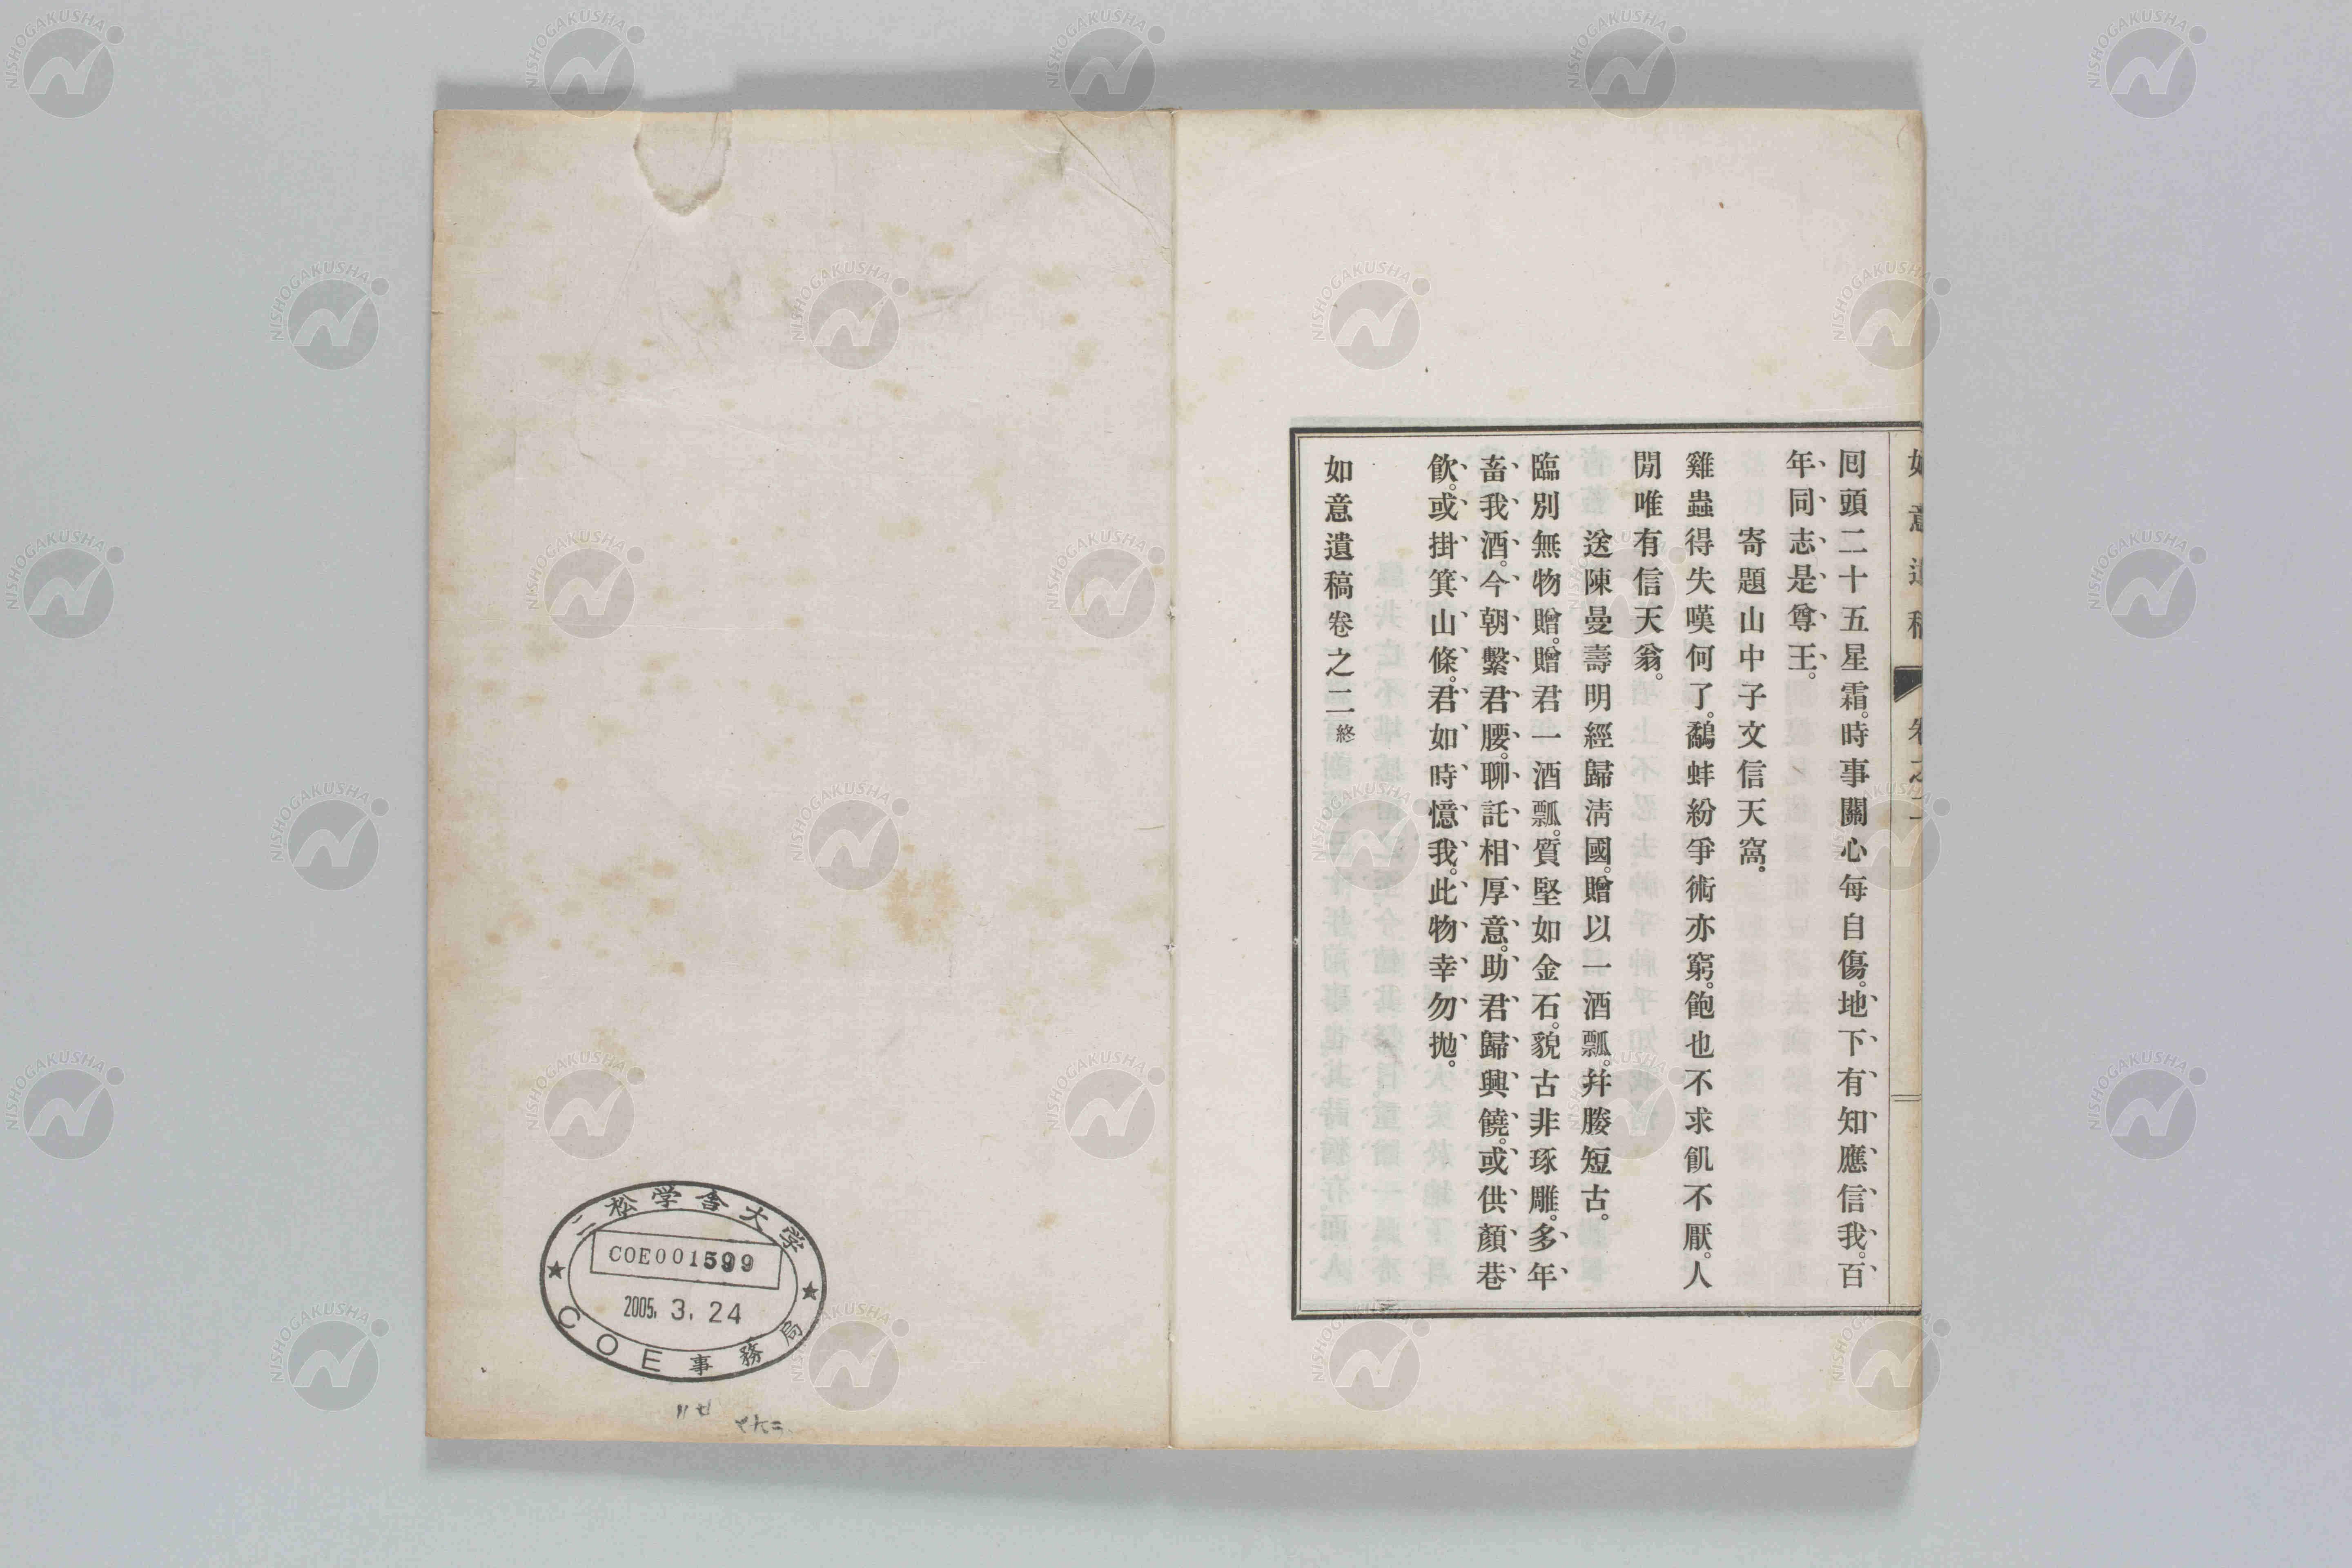 回頭二十五星霜。時事關心每自傷。地下有知應信我。百
年同志是尊王。
寄題山中子文信天窩。
雞蟲得失嘆何了。鷸蚌紛爭術亦窮。飽也不求飢不厭。人
間唯有信天翁。
送陳曼壽明經歸淸國。贈以一酒瓢。幷媵短古。
臨別無物贈。贈君一酒瓢。質堅如金石。貌古非琢雕。多年
畜我酒。今朝繫君腰。聊託相厚意。助君歸興饒。或供顏巷
飮。或掛箕山條。君如時憶我。此物幸勿抛。
如意遺稿卷之二終
如意遺稿 卷之二
二松学舎大学
COE001599
2005. 3. 24
COE事務局
NISHOGAKUSHA